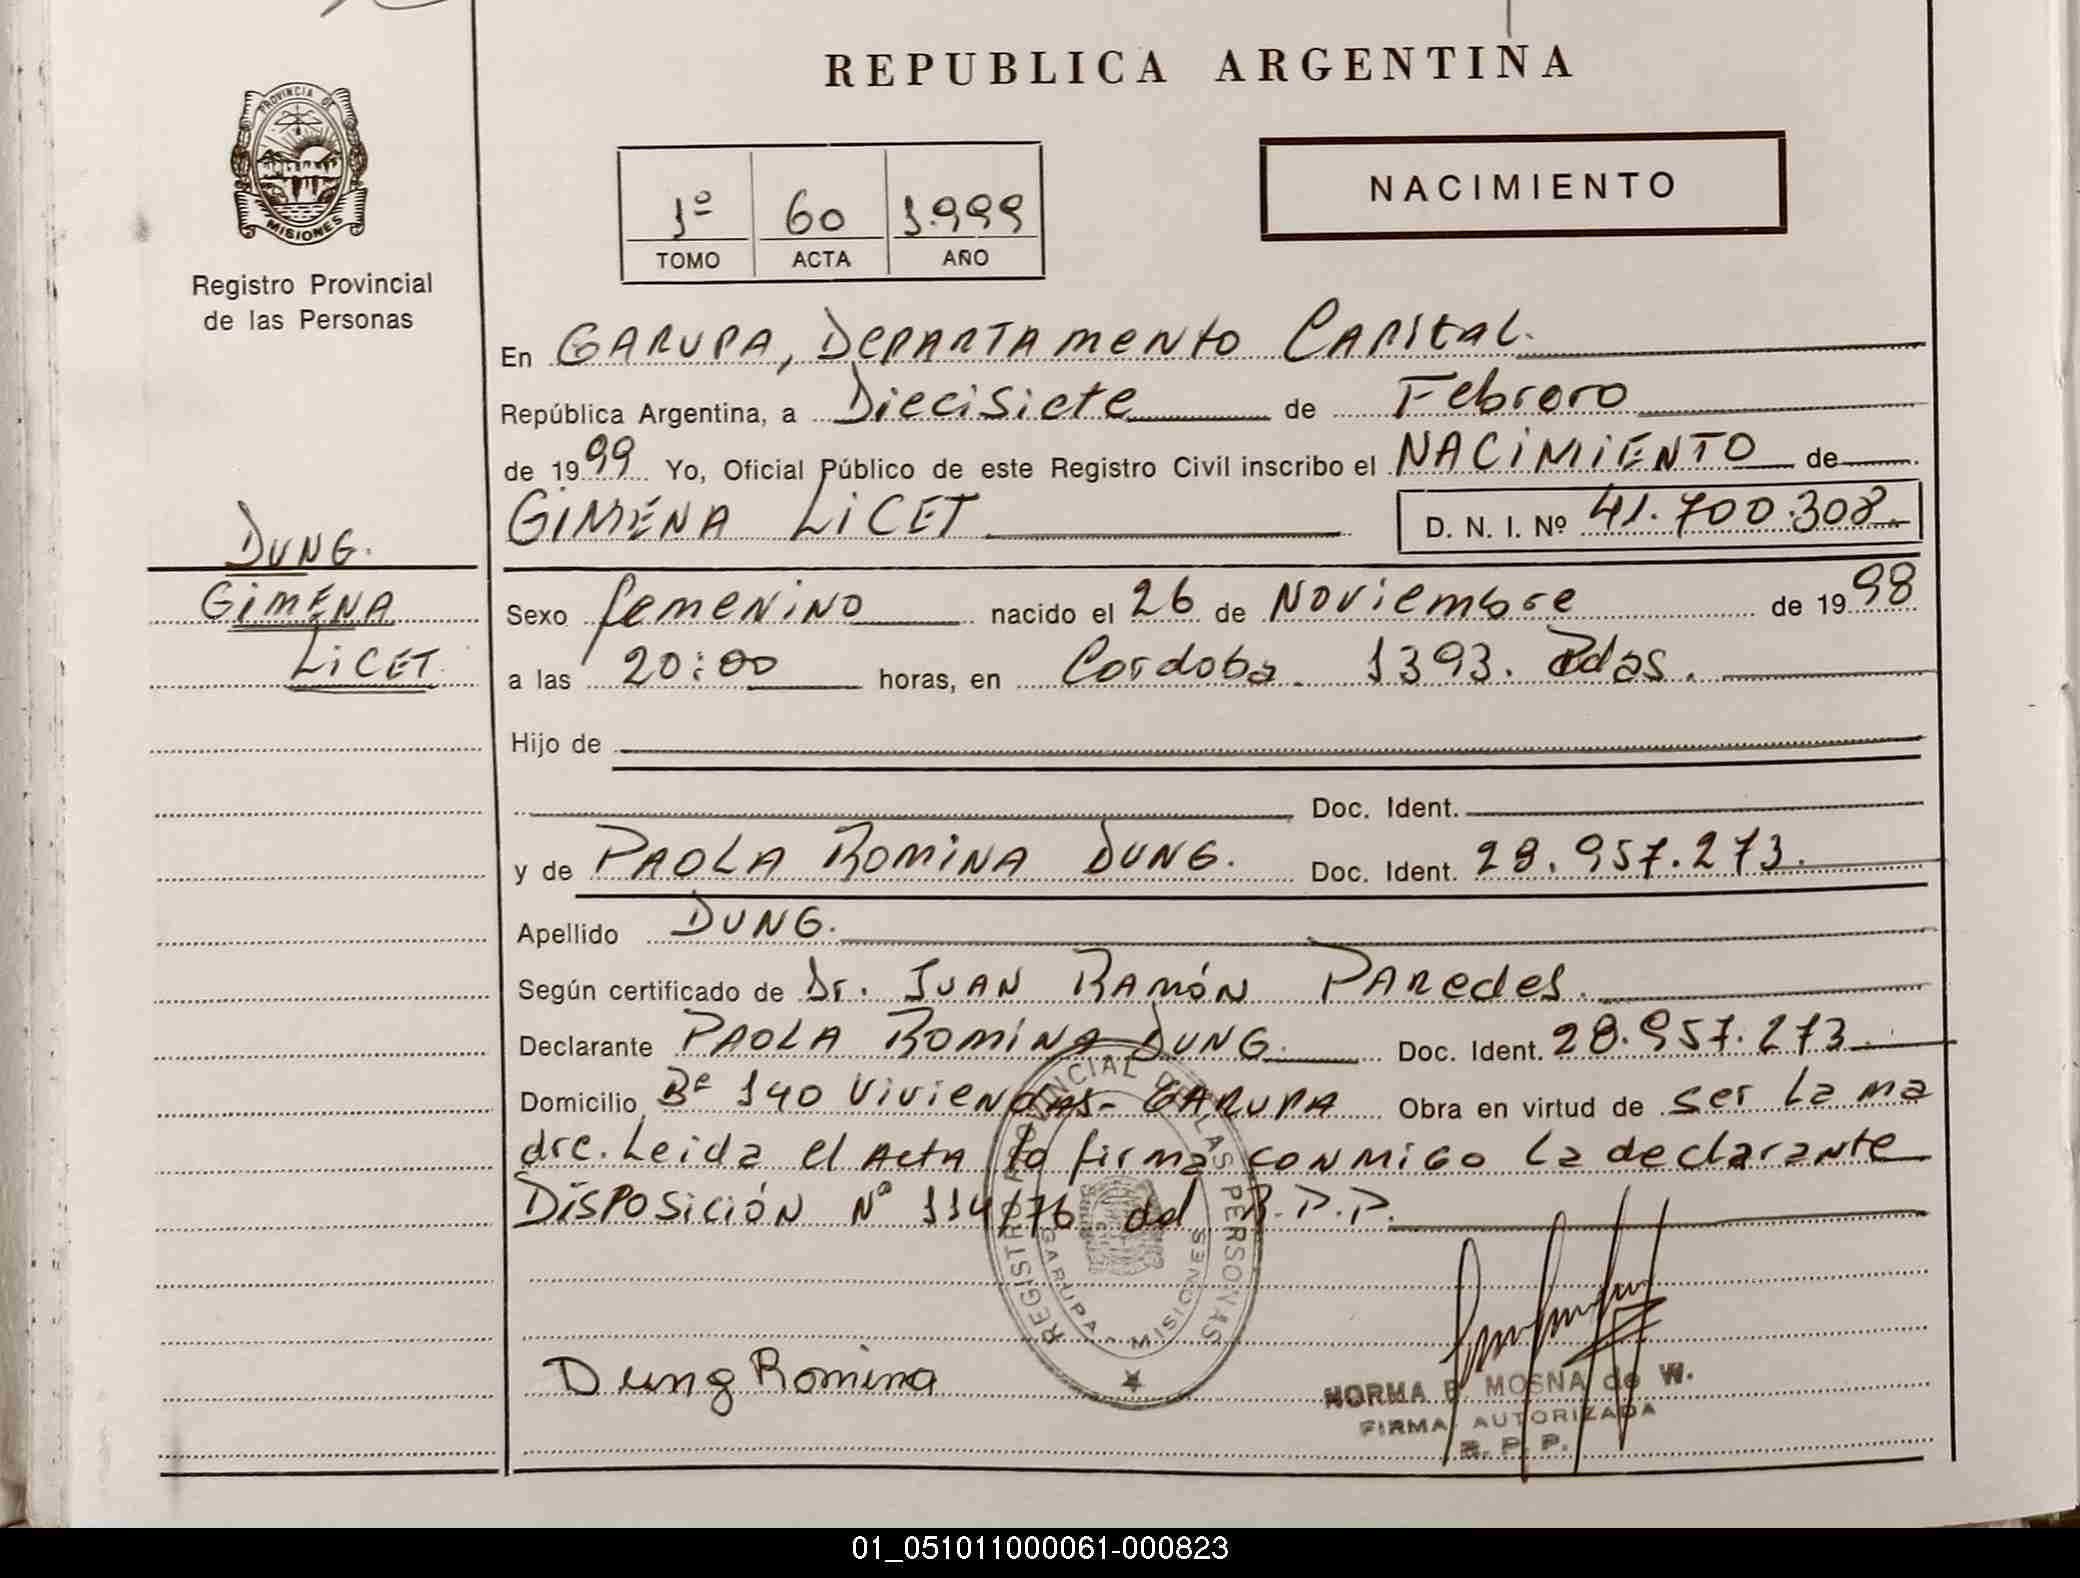 REPUBLICA ARGENTINA
PROVINCIA DE
MISIONES
Registro Provincial
de las Personas
1º 60 1.999
TOMO ACTA AÑO
NACIMIENTO
En GARUPA, DEPARTAMENTO CAPITAL.
República Argentina, a Diecisiete de Febrero
de 1999 Yo, Oficial Público de este Registro Civil inscribo el NACIMIENTO de
GIMENA LICET D. N. I. Nº 41.700.308.
DUNG.
GIMENA
LICET.
Sexo femenino nacido el 26 de Noviembre de 1998
a las 20:00 horas, en Cordoba. 1393. Pdas.
Hijo de
Doc. Ident.
y de PAOLA ROMINA DUNG. Doc. Ident. 28.957.273.
Apellido DUNG.
Según certificado de Dr. JUAN RAMÓN PAREDES.
Declarante PAOLA ROMINA DUNG Doc. Ident. 28.957.273.
Domicilio Bº 140 Viviendas - GARUPA Obra en virtud de ser la ma
dre. Leida el Acta la firma conmigo la declarante
Disposición Nº 114/76 del R.P.P.
REGISTRO PROVINCIAL DE LAS PERSONAS
GARUPA - MISIONES
Dung Romina
NORMA B. MOSNA de W.
FIRMA AUTORIZADA
R. P. P.
01_051011000061-000823